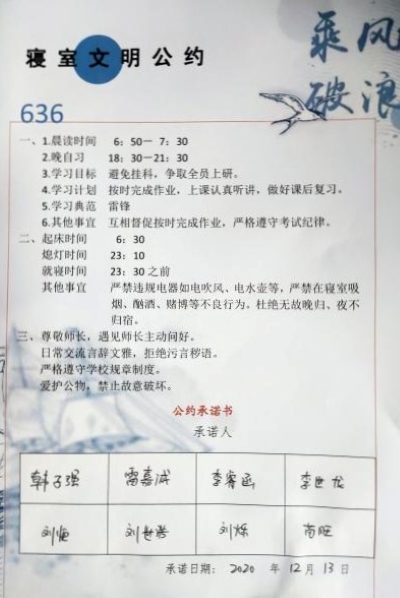 乘风
破浪
寝室文明公约
636
一、1.晨读时间 6:50—7:30
2.晚自习 18:30—21:30
3.学习目标 避免挂科，争取全员上研。
4.学习计划 按时完成作业，上课认真听讲，做好课后复习。
5.学习典范 雷锋
6.其他事宜 互相督促按时完成作业，严格遵守考试纪律。
二、起床时间 6:30
熄灯时间 23:10
就寝时间 23:30之前
其他事宜 严禁违规电器如电吹风、电水壶等，严禁在寝室吸
烟、酗酒、赌博等不良行为。杜绝无故晚归、夜不
归宿。
三、尊敬师长，遇见师长主动问好。
日常交流言辞文雅，拒绝污言秽语。
严格遵守学校规章制度。
爱护公物，禁止故意破坏。
公约承诺书
承诺人
韩子强 雷嘉诚 李睿函 李世龙
刘恒 刘世浩 刘烁 苗旺
承诺日期：2020 年 12 月 13 日